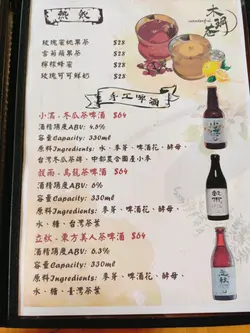 熱飲
玫瑰蜜桃果茶 $28
雪莓蘋果茶 $28
檸檬蜂蜜 $28
玫瑰可可鮮奶 $28
手工啤酒
小滿.冬瓜茶啤酒 $64
酒精錫度ABV: 4.8%
容量Capacity: 330ml
原料Ingredients: 水、麥芽、啤酒花、酵母、
台灣冬瓜茶磚、中都農會國產小麥
穀雨.烏龍茶啤酒 $64
酒精錫度ABV: 6%
容量Capacity: 330ml
原料Ingredients: 麥芽、啤酒花、酵母、
水、糖、台灣茶葉
立秋.東方美人茶啤酒 $64
酒精錫度ABV: 6.3%
容量Capacity: 330ml
原料Ingredients: 麥芽、啤酒花、酵母、
水、糖、臺灣茶葉